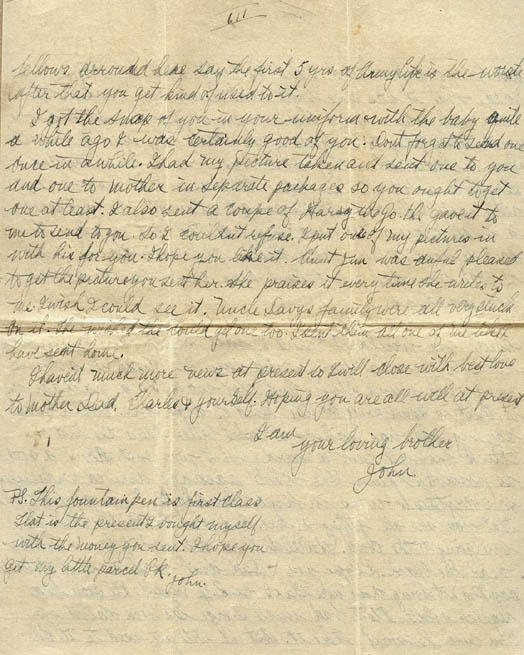 fellows arround here say the first 5 yrs of Army life is the worste
after that you get kind of used to it.
I got the snap of you in your uniform with the baby quite
a while ago & was certainly good of you. Dont forget to send one
once in awhile. I had my picture taken and sent one to you
and one to mother in seperate packages so you ought to get
one at least. I also sent a couple of Harry he gave it to
me to send to you. So I couldn't refuse. I put one of my pictures in
with his for you. I hope you like it. Aunt was awful pleased
to get the picture you sent her. She praises it every time she writes to
me I wish I could see it. Uncle Davys family were all very
on it. She wished she could get one too. I sent them all one of
have sent home.
I haven't much more news at present so I will close with best love
to Mother Dad, Charlie & yourself. Hoping you are all well at present
I am
your loving brother
John.
P.S. This fountain pen is first class
that is the present I bought myself
with the money you sent. I hope you
get my little parcel O.K.
John.